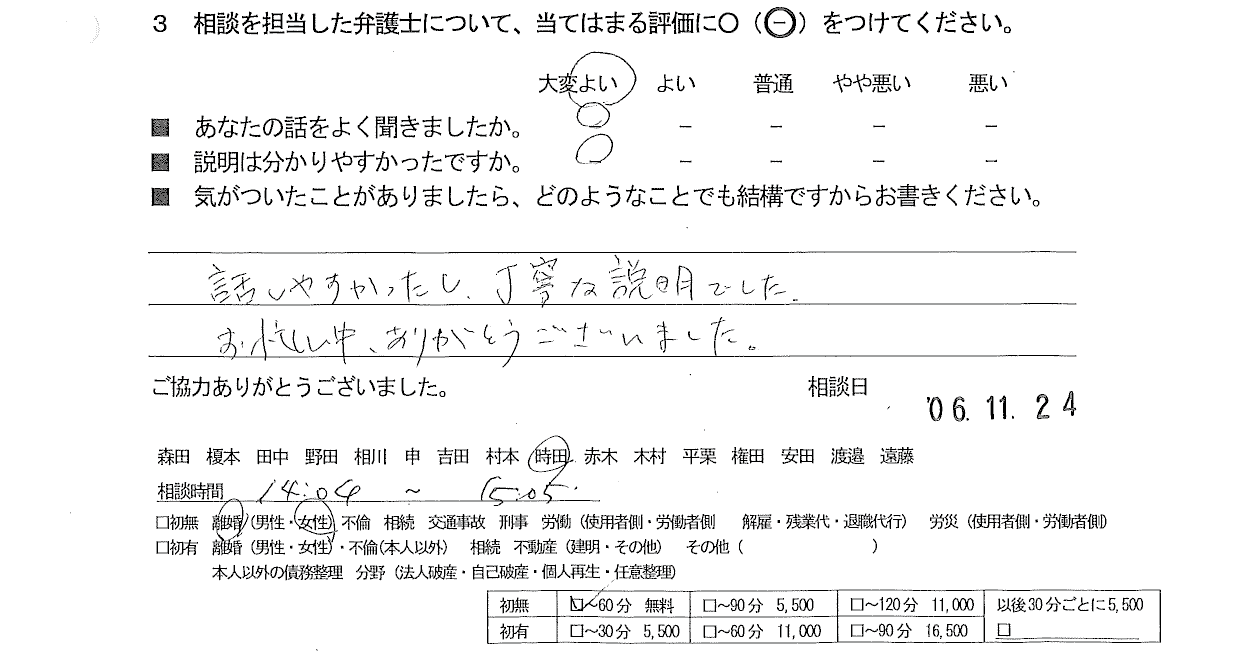 3 相談を担当した弁護士について、当てはまる評価に○（⊖）をつけてください。
大変よい よい 普通 やや悪い 悪い
■ あなたの話をよく聞きましたか。 － － － －
■ 説明は分かりやすかったですか。 － － － －
■ 気がついたことがありましたら、どのようなことでも結構ですからお書きください。
話しやすかったし、丁寧な説明でした。
お忙しい中、ありがとうございました。
ご協力ありがとうございました。 相談日
'06.11.24
森田 榎本 田中 野田 相川 申 吉田 村本 時田 赤木 木村 平栗 権田 安田 渡邉 遠藤
相談時間 14:04 ～ 15:05
□初無 離婚（男性・女性）不倫 相続 交通事故 刑事 労働（使用者側・労働者側 解雇・残業代・退職代行） 労災（使用者側・労働者側）
□初有 離婚（男性・女性）・不倫（本人以外） 相続 不動産（建明・その他） その他（ ）
本人以外の債務整理 分野（法人破産・自己破産・個人再生・任意整理）
初無 ☑～60分 無料 □～90分 5,500 □～120分 11,000 以後30分ごとに5,500
初有 □～30分 5,500 □～60分 11,000 □～90分 16,500 □